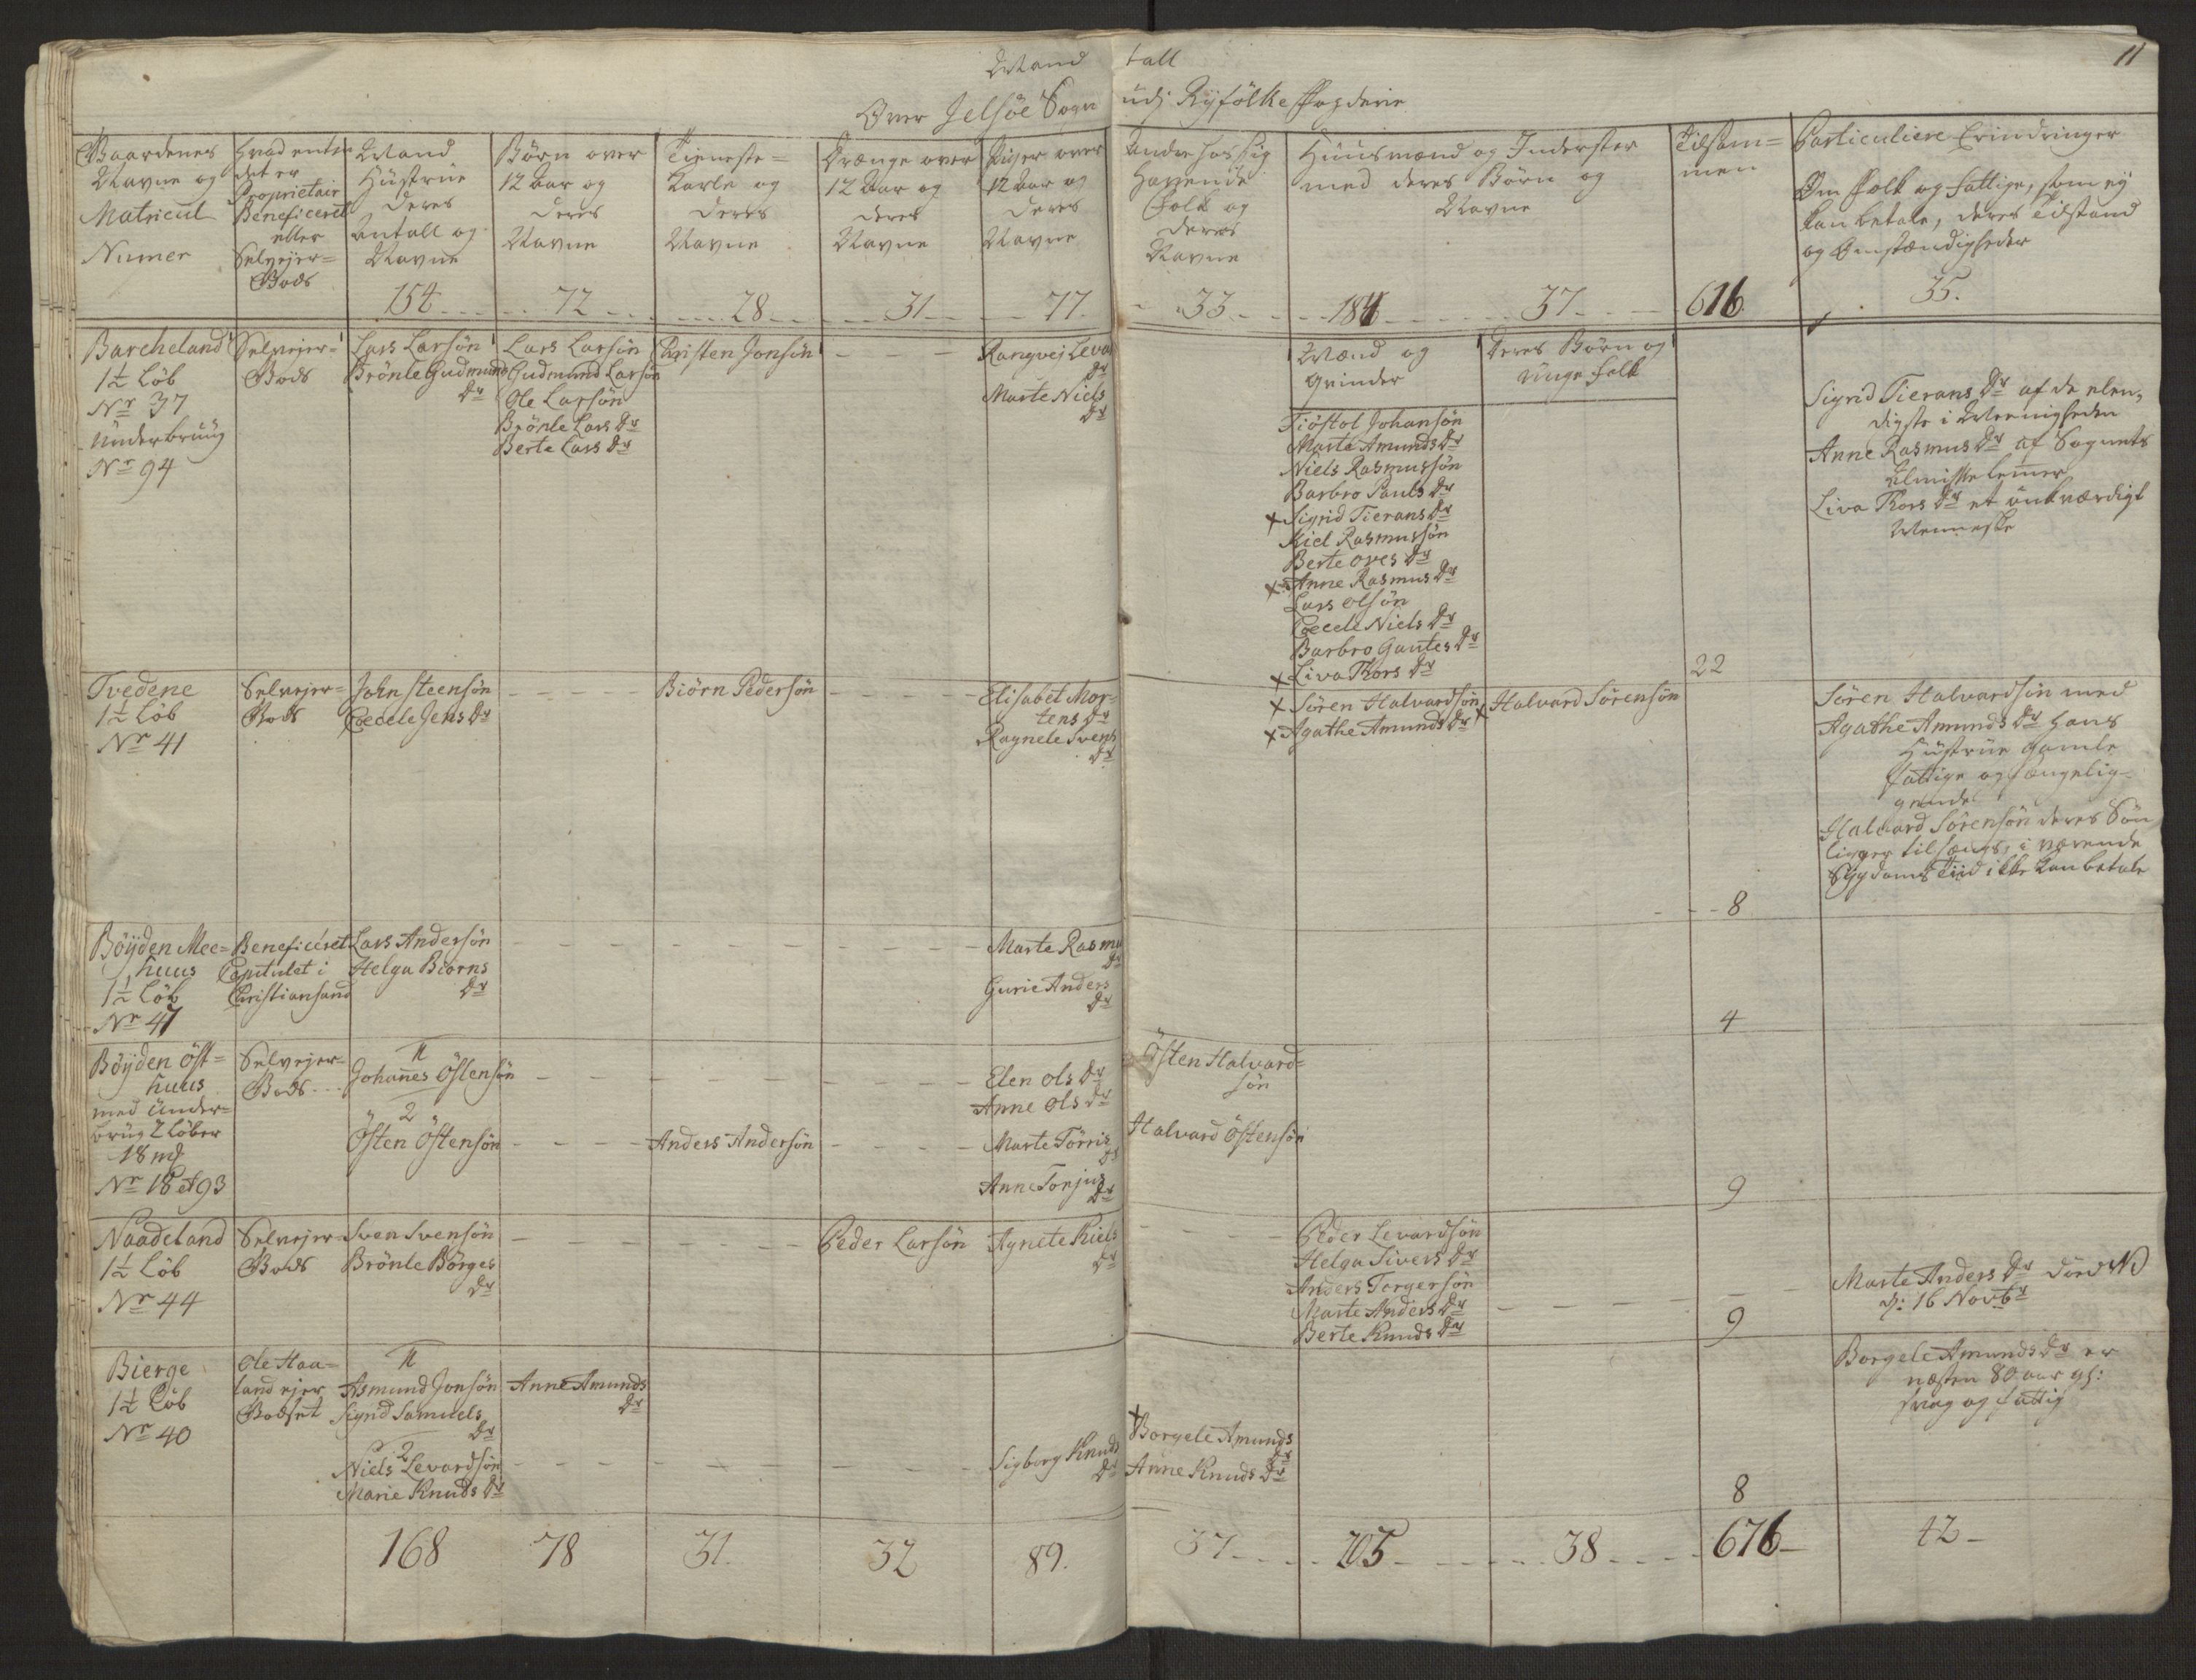 Mand tall
11
Over Jelsøe Sogn udj Ryfølke Fogderie
Gaardenes
Navne og
Matricul
Numer
Hvad enten
det er
Proprietair
Beneficeret
eller
Selvejer-
Gods
Mand
Hüstrue
deres
Antall og
Navne
Börn over
12 Aar og
deres
Navne
Tieneste-
Karle og
deres
Navne
Drænge over
12 Aar og
deres
Navne
Piger over
12 Aar og
deres
Navne
Andre hos sig
Havende
Folk og
deres
Navne
Huusmænd og Inderster
med deres Börn og
Navne
Tilsam-
men
Particuliere Erindringer
Om Folk og fattige, som ey
kan betale, deres Tilstand
og Omstændigheder
154 72 28 31 77. 33 184 37 616. 35.
Mænd og
Qvinder
Deres Börn og
Unge folk
Barcheland
1½ Löb
Nr 37
Underbruug
Nr 94
Selvejer-
Gods
Lars Larsön
Brönle Gudmund
Dr
Lars Larsön
Gudmund Larsön
Ole Larsön
Brönle Lars Dr
Berte Lars Dr
Kristen Jonsön
Rangvej Leva
Dr
Marte Niels
Dr
Tiöstol Johansön
Marte Amunds Dr
Niels Rasmussön
Barbro Pauls Dr
x Sigrid Tierans Dr
Kiel Rasmussön
Berte Oves Dr
x Anne Rasmus Dr
Lars Olsön
Cecele Niels Dr
Barbro Gautes Dr
x Liva Thors Dr
22
Sigrid Tierans Dr af de elen-
digste i Meenigheden
Anne Rasmus Dr af Sognets
Almisse Lemer
Liva Thors Dr et ünkværdigt
Menneske
Tvedene
1½ Löb
Nr 41
Selvejer-
Gods
John Steensön
Cecele Jens Dr
Biörn Pedersön
Elisabet Mor-
tens Dr
Ragnele Svens
Dr
x Sören Halvardsön
x Agathe Amunds Dr
x Halvard Sörensön
8
Sören Halvardsön med
Agathe Amunds Dr Hans
Hüstrüe gamle
fattige og sængelig-
gende
Halvard Sörensön deres Sön
ligger til sængs, i værende
Sygdoms Tiid ikke kan betale
Böyden Mee-
huus
1½ Löb
Nr 47
Beneficeret
Capitulet i
Christiansand
Lars Andersön
Helga Biörns
Dr
Marte Rasmu
Dr
Gurie Anders
Dr
4
Böyden Öst-
huus
med Under-
brug 2 Löber
18 mk
Nr 18 et 93
Selvejer-
Gods
1
Johannes Östensön
2
Östen Östensön
Anders Andersön
Elen Ols Dr
Anne Ols Dr
Marte Törris
Dr
Anne Tonjus
Dr
Östen Halvard-
sön
Halvard Östensön
9
Naadeland
1½ Löb
Nr 44
Selvejer-
Gods
Sven Svensön
Brönle Börges
Dr
Peder Larsön
Agnete Kiels
Dr
Peder Levardsön
Helga Sivers Dr
Anders Tergersön
Marte Anders Dr
Berte Knuds Dr
9
Marte Anders Dr döde
d: 16 Novbr
Bierge
1½ Löb
Nr 40
Ole Haa-
land ejer
Godset
1
Asmund Jonsön
Sigrid Samuels
Dr
2
Niels Levardsön
Marie Knuds Dr
Anne Amunds
Dr
Sigborg Knuds
Dr
x Borgele Amunds
Dr
Anne Knuds Dr
8
Borgele Amunds Dr er
næsten 80 aar gl:
svag og fattig
168 78 31. 32 89. 37 205 38 676 42